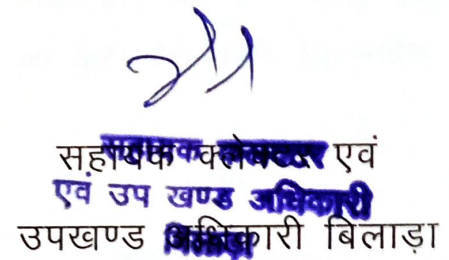 सहायक कलेक्टर एवं
एवं उप खण्ड अधिकारी
उपखण्ड अधिकारी बिलाड़ा